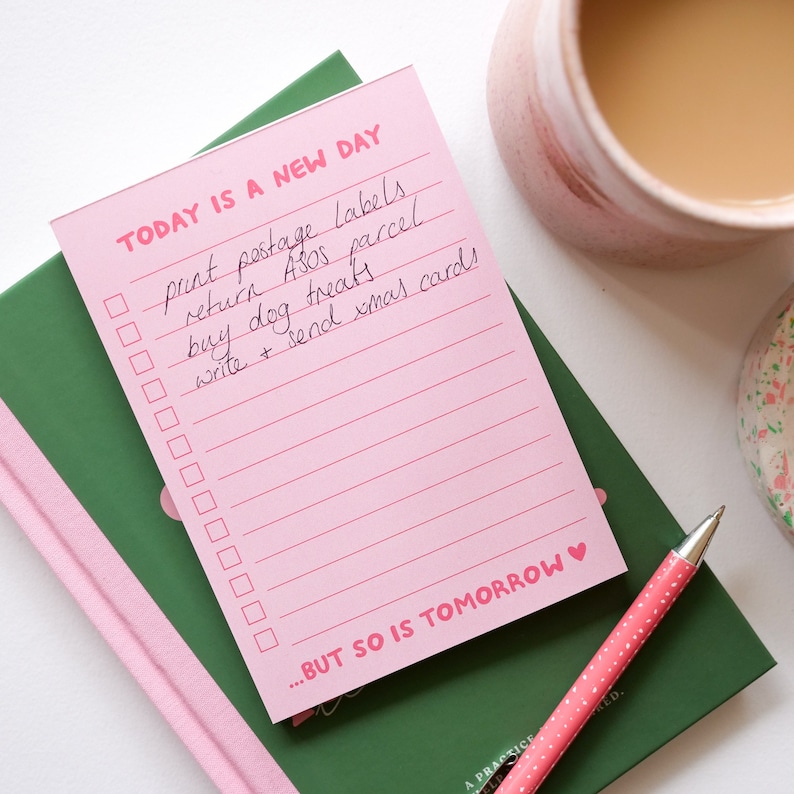 TODAY IS A NEW DAY
print postage labels
return ASOS parcel
buy dog treats
write + send xmas cards
...BUT SO IS TOMORROW ♥
A PRACTICE
HELP
RED.